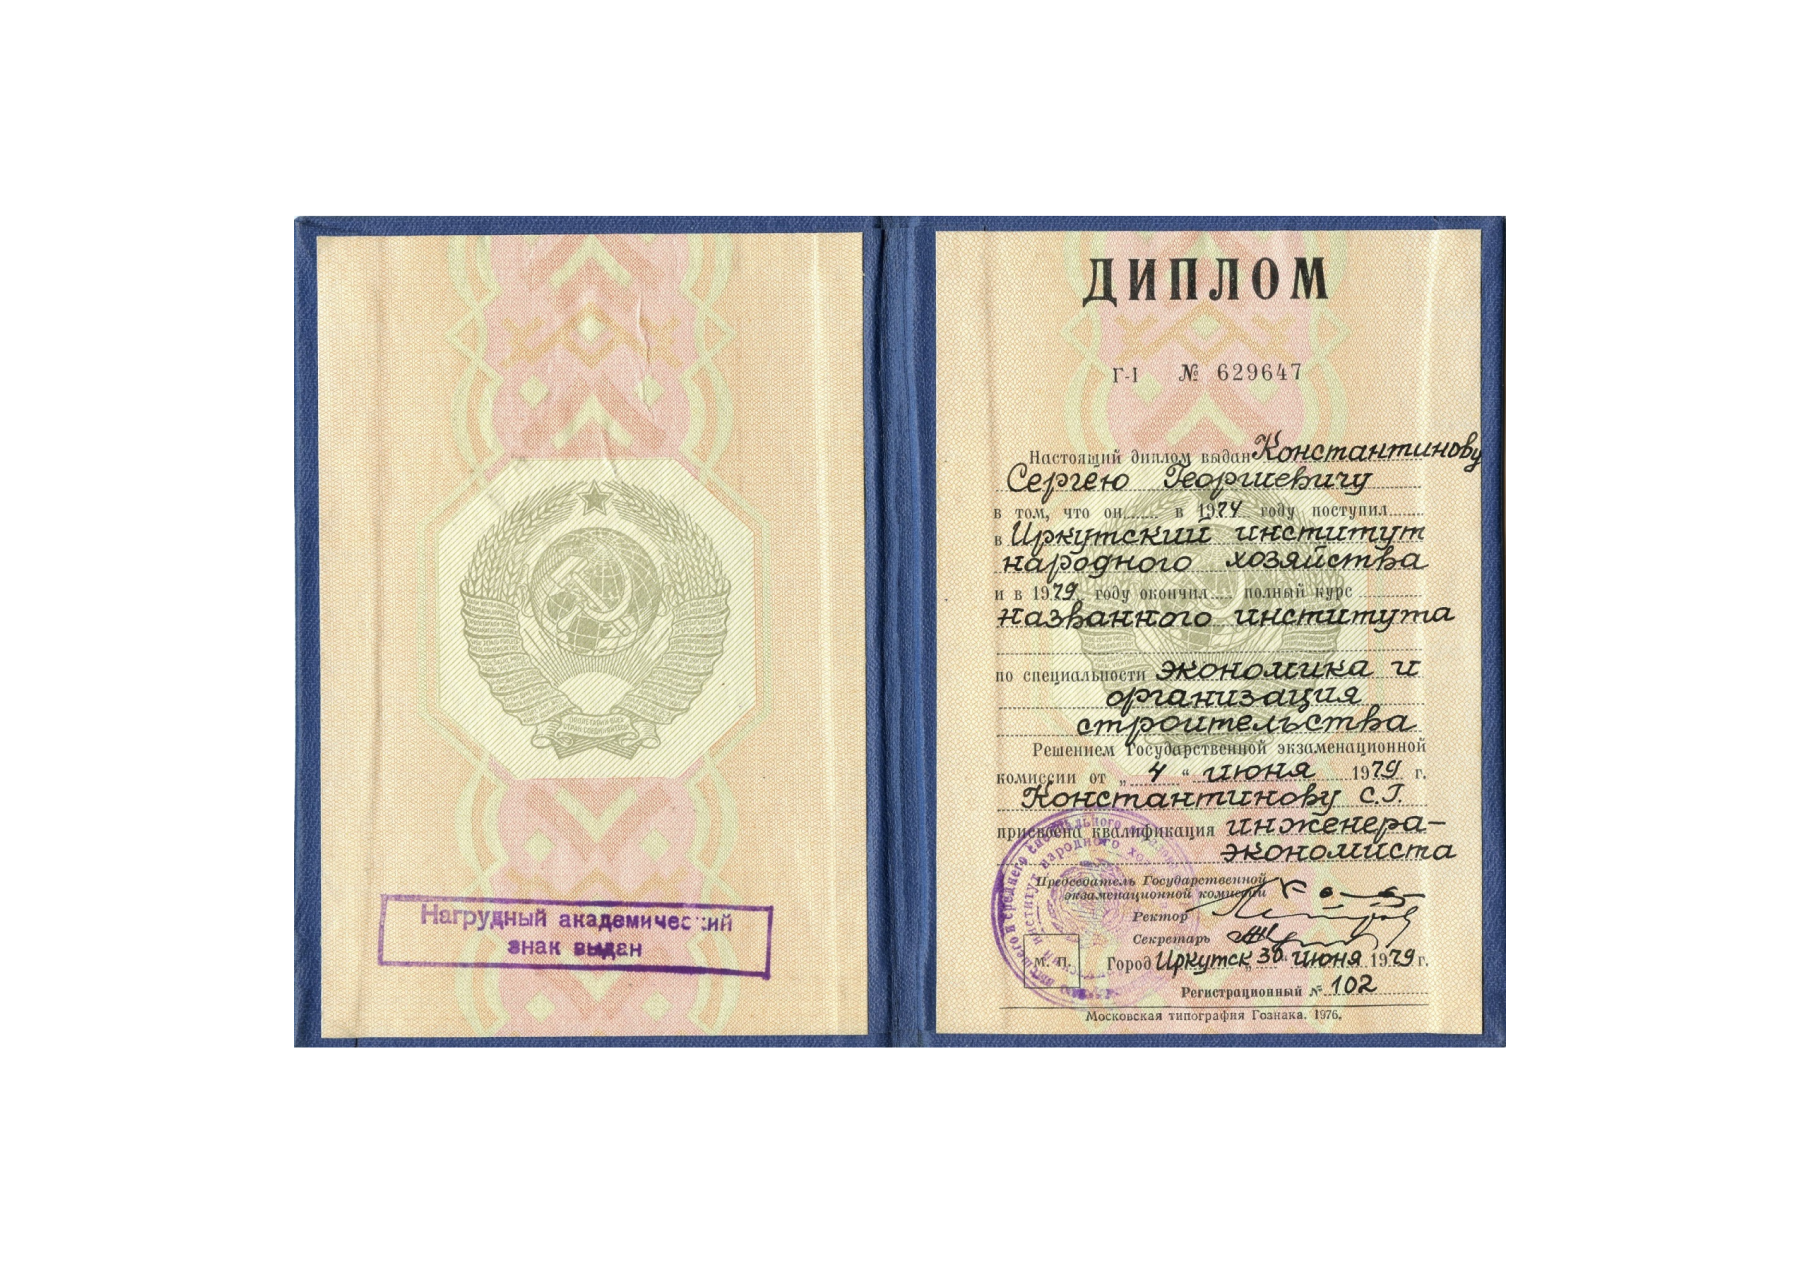 Нагрудный академический
знак выдан
ДИПЛОМ
Г-I № 629647
Настоящий диплом выдан Константинову
Сергею Георгиевичу
в том, что он в 1974 году поступил
в Иркутский институт
народного хозяйства
и в 1979 году окончил полный курс
названного института
по специальности экономика и
организация
строительства
Решением Государственной экзаменационной
комиссии от „ 4 “ июня 1979 г.
Константинову С.Г.
присвоена квалификация инженера-
экономиста
Председатель Государственной
экзаменационной комиссии
Ректор
Секретарь
М. П.
Город Иркутск „ 30 “ июня 1979 г.
Регистрационный № 102
Московская типография Гознака. 1976.